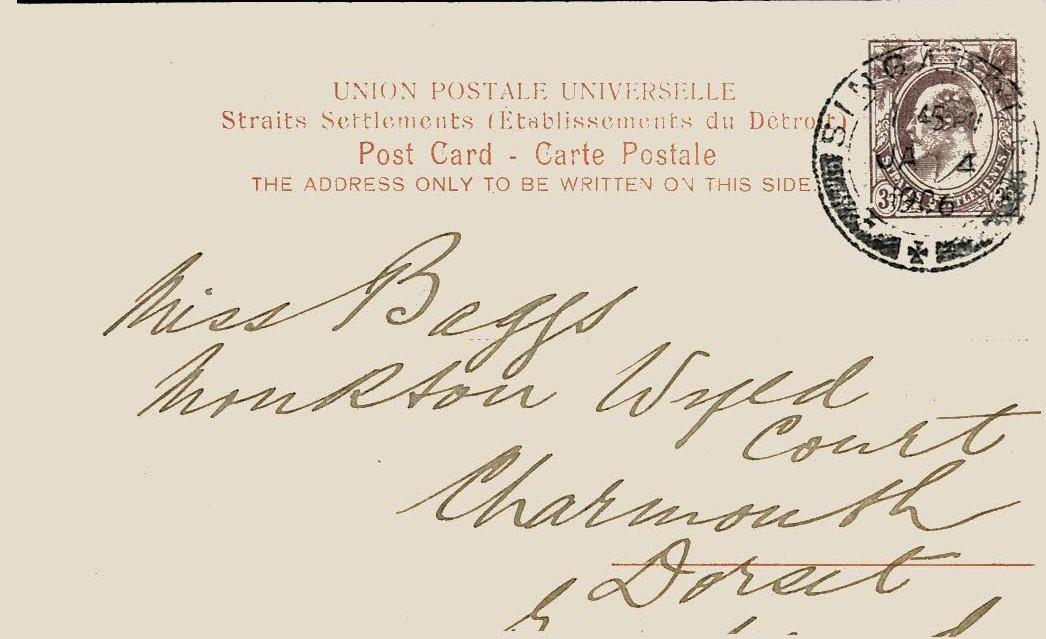 UNION POSTALE UNIVERSELLE
Straits Settlements (Établissements du Détroit)
Post Card - Carte Postale
THE ADDRESS ONLY TO BE WRITTEN ON THIS SIDE.
SINGAPORE
JA 4
1906
Miss Baggs
Monkton Wyld
Court
Charmouth
Dorset